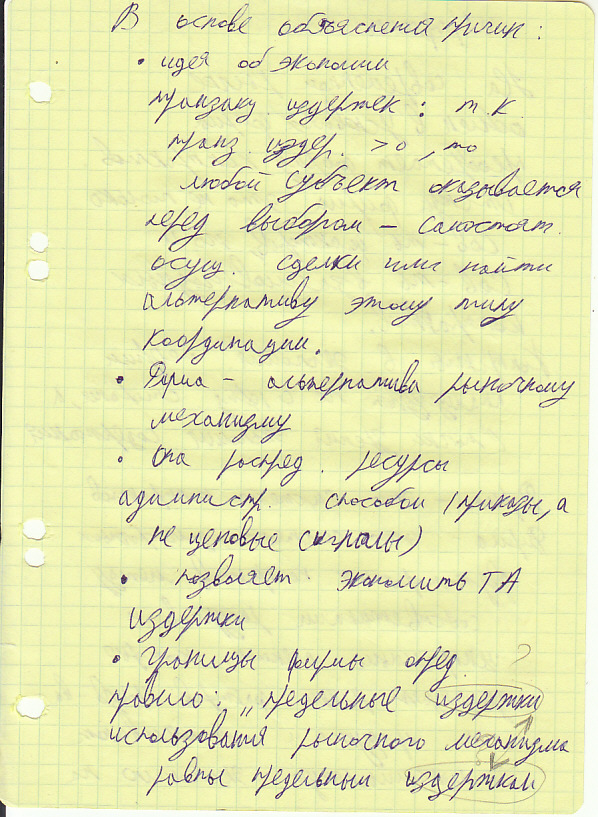 В основе объяснения причин:
• идея об экономии
транзакц. издержек: т.к.
транз. издер. >0, то
любой субъект оказывается
перед выбором – самостоят.
осущ. сделки или найти
альтернативу этому типу
координации.
• Фирма – альтернатива рыночному
механизму
• Она распред. ресурсы
администр. способом (приказы, а
не ценовые сигналы)
• позволяет экономить ТА
издержки
• Границы фирмы опред. ?
правило: „предельные издержки
использования рыночного механизма
равны предельным издержкам